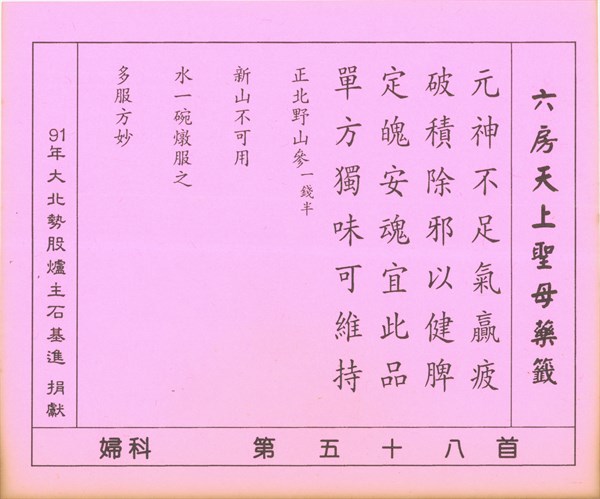 六房天上聖母藥籤
元神不足氣贏疲
破積除邪以健脾
定魄安魂宜此品
單方獨味可維持
正北野山參一錢半
新山不可用
水一碗燉服之
多服方妙
91年大北勢股爐主石基進 捐獻
婦科 第五十八首